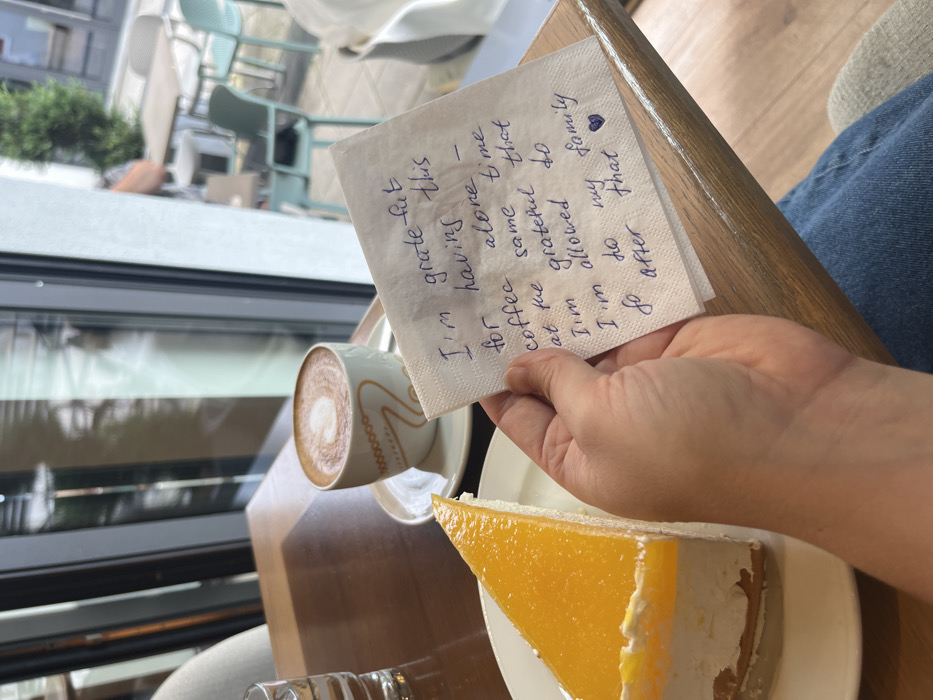 I'm grate-ful
for having this
coffee alone –
at the same time
I'm grateful that
I'm allowed do
go do my family
after that ♥